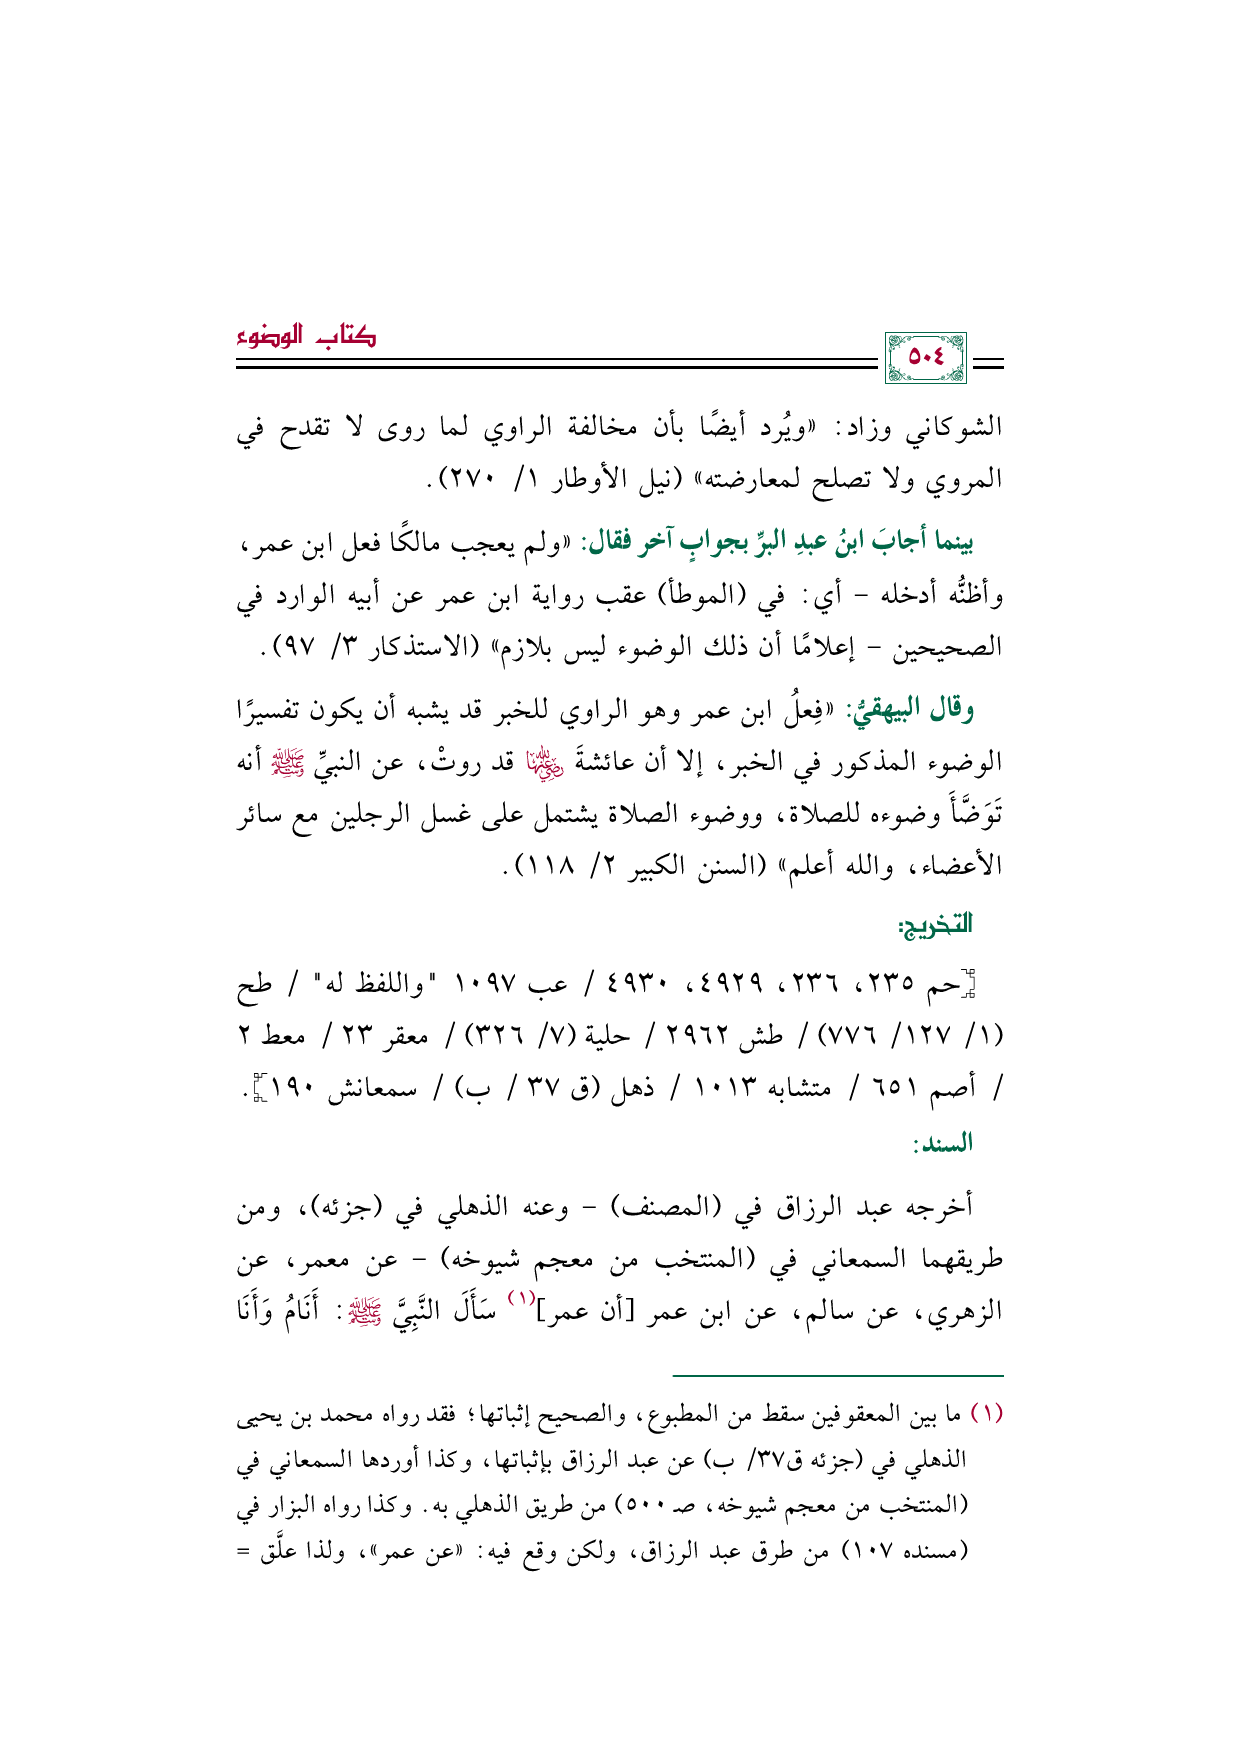 كتاب الوضوء
٥٠٤
الشوكاني وزاد: «ويُرد أيضًا بأن مخالفة الراوي لما روى لا تقدح في
المروي ولا تصلح لمعارضته» (نيل الأوطار ١/ ٢٧٠).
بينما أجابَ ابنُ عبدِ البرِّ بجوابٍ آخر فقال: «ولم يعجب مالكًا فعل ابن عمر،
وأظنُّه أدخله – أي: في (الموطأ) عقب رواية ابن عمر عن أبيه الوارد في
الصحيحين – إعلامًا أن ذلك الوضوء ليس بلازم» (الاستذكار ٣/ ٩٧).
وقال البيهقيُّ: «فِعلُ ابن عمر وهو الراوي للخبر قد يشبه أن يكون تفسيرًا
الوضوء المذكور في الخبر، إلا أن عائشةَ رضي الله عنها قد روتْ، عن النبيِّ ﷺ أنه
تَوَضَّأَ وضوءه للصلاة، ووضوء الصلاة يشتمل على غسل الرجلين مع سائر
الأعضاء، والله أعلم» (السنن الكبير ٢/ ١١٨).
التخريج:
[حم ٢٣٥، ٢٣٦، ٤٩٢٩، ٤٩٣٠ / عب ١٠٩٧ "واللفظ له" / طح
(١/ ١٢٧/ ٧٧٦) / طش ٢٩٦٢ / حلية (٧/ ٣٢٦) / معقر ٢٣ / معط ٢
/ أصم ٦٥١ / متشابه ١٠١٣ / ذهل (ق ٣٧ / ب) / سمعانش ١٩٠].
السند:
أخرجه عبد الرزاق في (المصنف) – وعنه الذهلي في (جزئه)، ومن
طريقهما السمعاني في (المنتخب من معجم شيوخه) – عن معمر، عن
الزهري، عن سالم، عن ابن عمر [أن عمر](١) سَأَلَ النَّبِيَّ ﷺ: أَنَامُ وَأَنَا
(١) ما بين المعقوفين سقط من المطبوع، والصحيح إثباتها؛ فقد رواه محمد بن يحيى
الذهلي في (جزئه ق٣٧/ ب) عن عبد الرزاق بإثباتها، وكذا أوردها السمعاني في
(المنتخب من معجم شيوخه، صـ ٥٠٠) من طريق الذهلي به. وكذا رواه البزار في
(مسنده ١٠٧) من طرق عبد الرزاق، ولكن وقع فيه: «عن عمر»، ولذا علَّق =